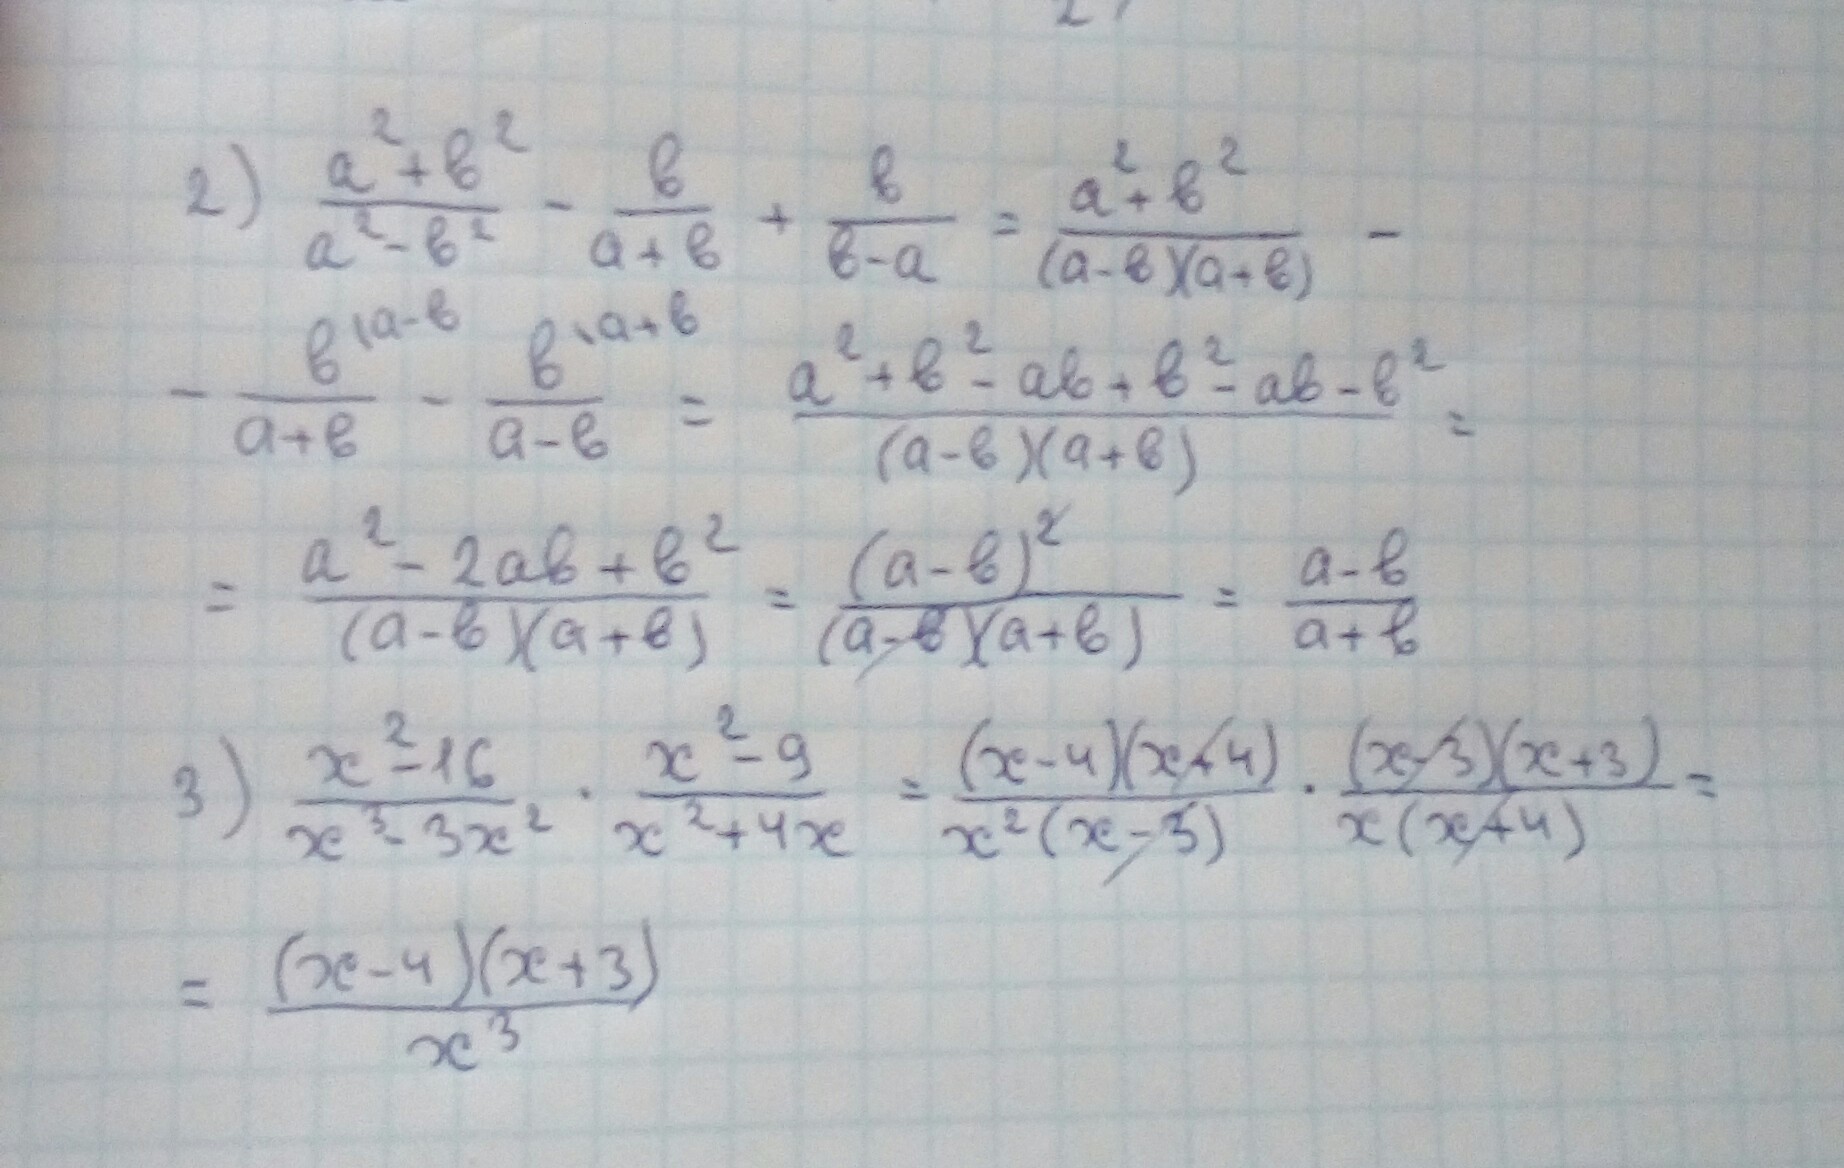 2) (a²+b²)/(a²-b²) - b/(a+b) + b/(b-a) = (a²+b²)/((a-b)(a+b)) -
- b\a-b/(a+b) - b\a+b/(a-b) = (a²+b²-ab+b²-ab-b²)/((a-b)(a+b)) =
= (a²-2ab+b²)/((a-b)(a+b)) = (a-b)²/((a-b)(a+b)) = (a-b)/(a+b)
3) (x²-16)/(x³-3x²) · (x²-9)/(x²+4x) = ((x-4)(x+4))/(x²(x-3)) · ((x-3)(x+3))/(x(x+4)) =
= ((x-4)(x+3))/x³